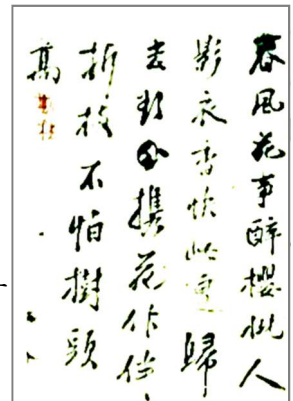 春風花事醉櫻桃人
影衣香快此遭歸
去攜花作伴
折枝不怕樹頭
高